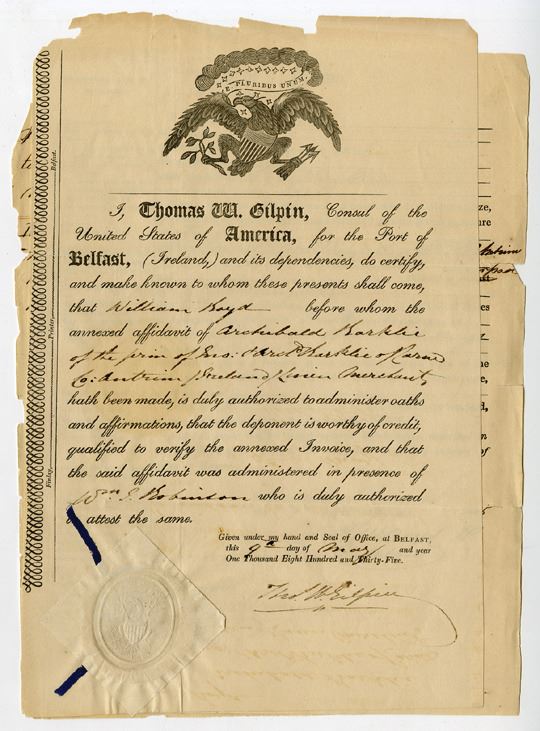 E PLURIBUS UNUM
I, Thomas W. Gilpin, Consul of the
United States of America, for the Port of
Belfast, (Ireland,) and its dependencies, do certify,
and make known to whom these presents shall come,
that William Boyd before whom the
annexed affidavit of Archibald Barklie
of the firm of Jno: & Archd Barklie of Larne
Co: Antrim Ireland Linen Merchant,
hath been made, is duly authorized to administer oaths
and affirmations, that the deponent is worthy of credit,
qualified to verify the annexed Invoice, and that
the said affidavit was administered in presence of
Wm E. Robinson who is duly authorized
to attest the same.
Given under my hand and Seal of Office, at BELFAST,
this 9th day of May and year
One Thousand Eight Hundred and Thirty-Five.
Thos. W. Gilpin
Finlay, Printer, Belfast.